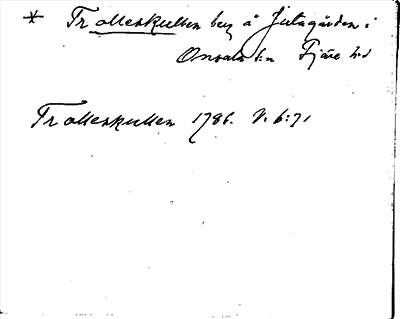 * Trolleskullen berg å Julagården i
Onsala s:n Fjäre h:d
Trolleskullen 1786. V. 6:71